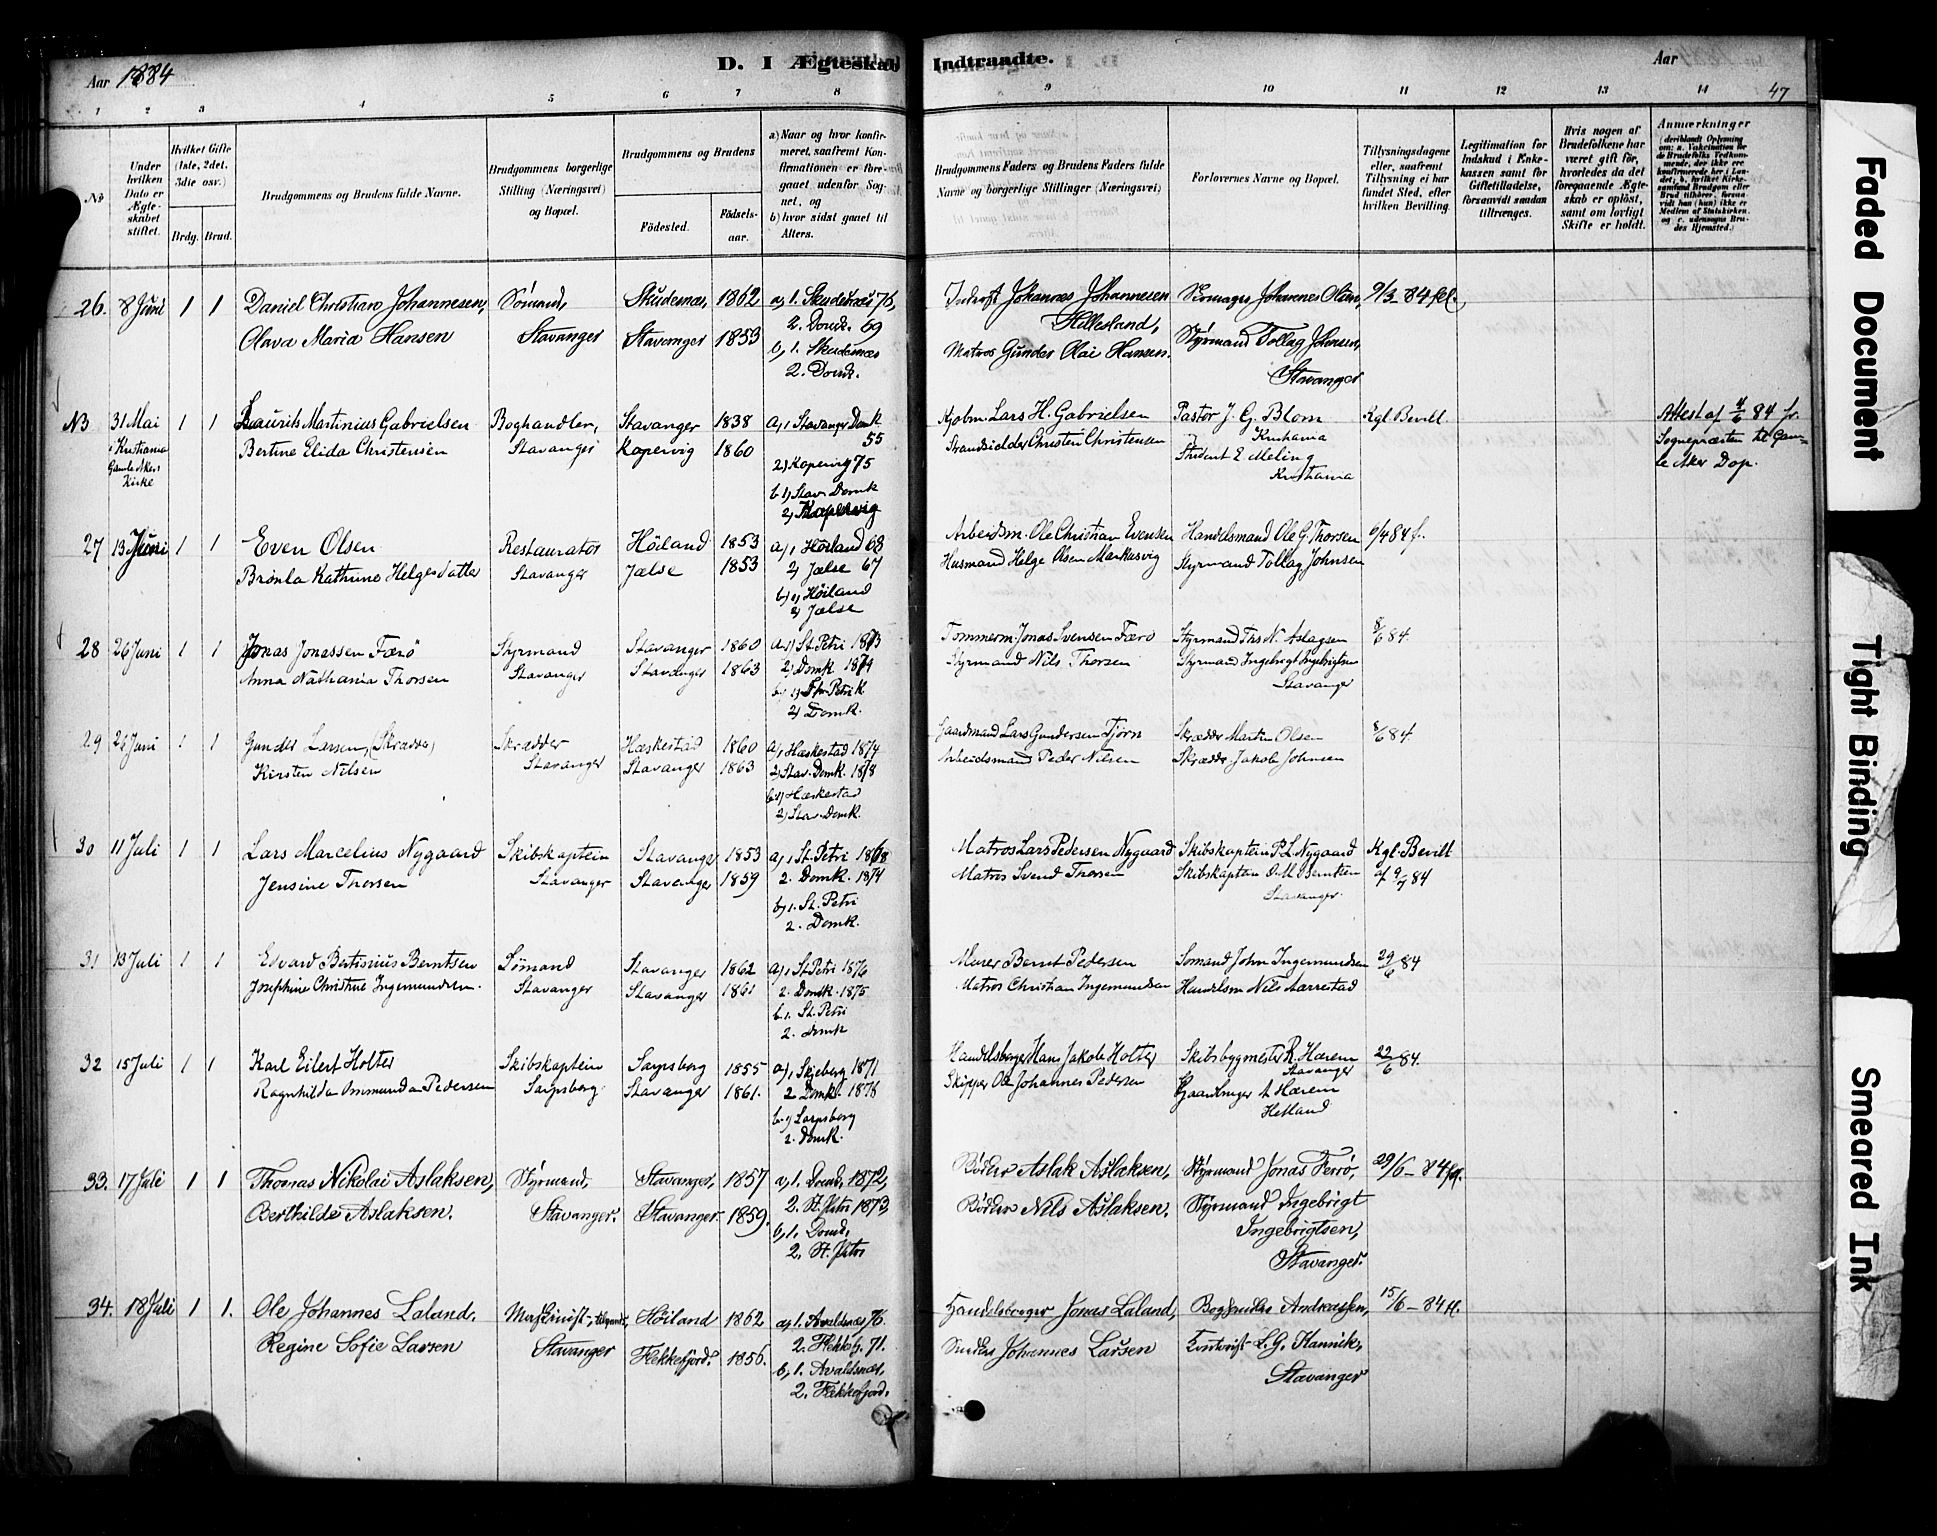 Aar 1884
D. I Ægteskab Indtraadte.
Aar
47
1 2 3 4 5 6 7 8 9 10 11 12 13 14
No
Under hvilken Dato er Ægteskabet stiftet.
Hvilket Gifte (1ste, 2det, 3die osv.)
Brdg. Brud.
Brudgommens og Brudens fulde Navne.
Brudgommens borgerlige Stilling (Næringsvei) og Bopæl.
Brudgommens og Brudens
Fødested.
Fødselsaar.
a) Naar og hvor konfirmeret, saafremt Konfirmationen er foregaaet udenfor Sognet, og
b) hvor sidst gaaet til Alters.
Brudgommens Faders og Brudens Faders fulde Navne og borgerlige Stillinger (Næringsvei).
Forlovernes Navne og Bopæl.
Tillysningsdagene eller, saafremt Tillysning ei har fundet Sted, efter hvilken Bevilling.
Legitimation for Indskud i Enkekassen samt for Giftetilladelse, forsaavidt saadan tiltrænges.
Hvis nogen af Brudefolkene har været gift før, hvorledes da det foregaaende Ægteskab er opløst, samt om lovligt Skifte er holdt.
Anmærkninger
26. 8 Juni 1 1 Daniel Christian Johannesen, Sömand, Skudesnæs, 1862 a, 1. Skudesnæs 76,
Johannes Johannesen Hillesland, Johannes Olsen, 9/3 84 fl.
Olava Maria Hansen Stavanger Stavanger 1853 2. Domk. 69
b, 1. Skudesnæs
2. Domk.
Matros Gunder Olai Hansen. Styrmand Tollag Johnsen,
Stavanger
NB 31 Mai 1 1 Laurits Martinius Gabrielsen Boghandler, Stavanger 1838 a, 1 Stavanger Domk 55
i Kristiania Gamle Akers Kirke
Bertine Elida Christensen Stavanger Kopervig 1860 2) Kopervig 75
b 1) Stav. Domk
2) Kopervig
Kjøbm. Lars H. Gabrielsen Pastor J. G. Blom Kgl Bevill.
Kristiania
Strandsidder Christen Christensen Student E. Meling
Kristiania
Attest af 4/6 84 fr. Sognepræsten til Gamle Aker Dop.
27 13 Juni 1 1 Even Olsen Restauratør Höiland 1853 a, 1 Höiland 68
Brønla Kathrine Helgesdatter Stavanger Jælse 1853 2) Jælse 67
b, 1) Höiland
2) Jælse
Arbeidsm. Ole Christian Evensen Handelsmand Ole G. Thorsen 6/4 84 f.
Husmand Helge Olsen Markusvig Styrmand Tollag Johnsen
28 26 Juni 1 1 Jonas Jonassen Færö Styrmand Stavanger 1860 a. 1) St. Petri 1873
Anna Nathania Thorsen Stavanger Stavanger 1863 2) Domk 1879
b, 1) St. Petri K
2) Domk.
Tømmerm. Jonas Svensen Færö Styrmand Ths N. Aslagsen 8/6 84.
Styrmand Nils Thorsen Styrmand Ingebrigt Ingebrigtsen
Stavanger
29 26 Juni 1 1 Gunder Larsen, (Skrædder) Skrædder Hæskestad 1860 a, 1 Hæskestad 1874
Kirsten Nilsen Stavanger Stavanger 1863 2) Stav. Domk. 1878
b 1) Hæskestad
2) Stav. Domk.
Gaardmand Lars Gundersen Tjörn Skrædder Martin Olsen 8/6 84.
Arbeidsmand Peder Nilsen Skrædder Jakob Johnsen
30 11 Juli 1 1 Lars Marcelius Nygaard Skibskaptein Stavanger 1853 a, 1 St. Petri 1868
Jensine Thorsen Stavanger Stavanger 1859 2. Domk. 1874
b, 1. St. Petri
2. Domk.
Matros Lars Pedersen Nygaard Skibskaptein P. L. Nygaard Kgl. Bevill
Matros Svend Thorsen Skibskaptein O. M. Berntsen af 9/7 84
Stavanger.
31 13 Juli 1 1 Edvard Bertinius Berntsen Sømand Stavanger 1862 a, 1 St. Petri 1876
Josephine Christine Ingemundsen. Stavanger Stavanger 1861 2. Domk. 1875
b. 1. St. Petri
2. Domk
Murer Bernt Pedersen Sømand John Ingemundsen 29/6 84
Matros Christian Ingemundsen Handelsm Nils Aarrestad
32 15 Juli 1 1 Karl Eilert Holter Skibskaptein Sarpsborg 1855 a, 1 Skjeberg 1871
Ragnhilda Ommunda Pedersen Sarpsborg. Stavanger 1861. 2 Domk. 1876
b. 1) Sarpsborg
2. Domk.
Handelsborger Hans Jakob Holter Skibsbygmester R. Hærem 22/6 84.
Stavanger
Skipper Ole Johannes Pedersen Gaardbruger A Hærem
Hetland
33. 17 Juli 1 1 Thomas Nikolai Aslaksen, Styrmand, Stavanger, 1857 a, 1. Domk. 1872,
Berthilde Aslaksen. Stavanger. Stavanger. 1859. 2. St. Petri 1873
b, 1. Domk.
2. St. Petri
Bödker Aslak Aslaksen, Styrmand Jonas Ferrö, 29/6 - 84 fl.
Bödker Nils Aslaksen. Styrmand Ingebrigt
Ingebrigtsen,
Stavanger.
34. 18 Juli 1 1. Ole Johannes Laland, Maskinist, Höiland 1862 a, 1. Avaldsnæs 76.
Regine Sofie Larsen Stavanger Flekkefjord. 1856. 2. Flekkefj. 71.
b, 1. Avaldsnæs,
2. Flekkefjord.
Handelsborger Jonas Laland, Andreassen, 15/6 - 84 fl.
Johannes Larsen L. G. Hannik,
Stavanger
Faded Document
Tight Binding
Smeared Ink